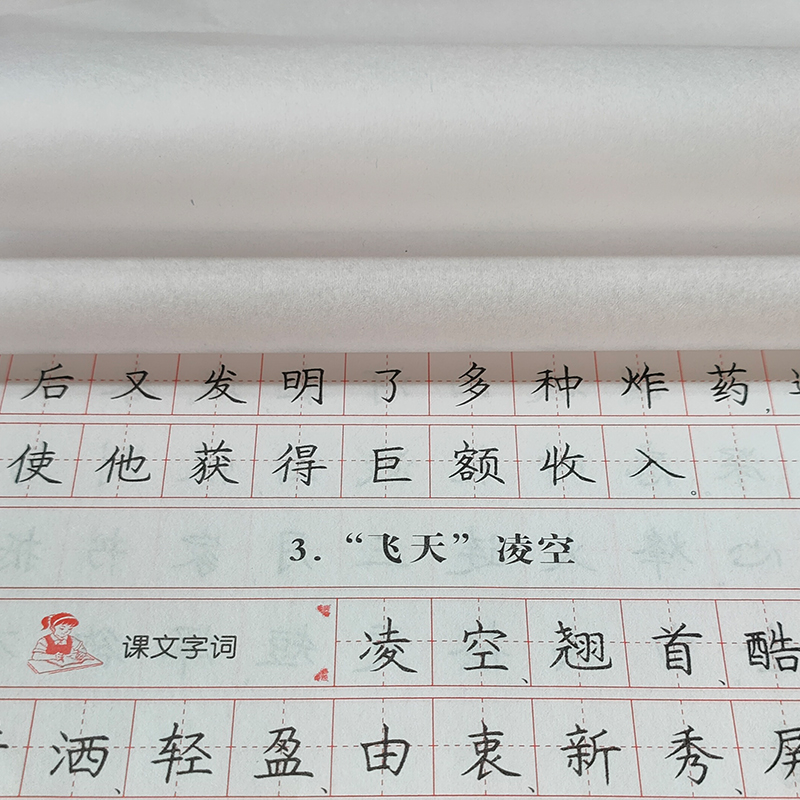 后又发明了多种炸药，
使他获得巨额收入。
3.“飞天”凌空
课文字词 凌空、翘首、酷
洒、轻盈、由衷、新秀、屏